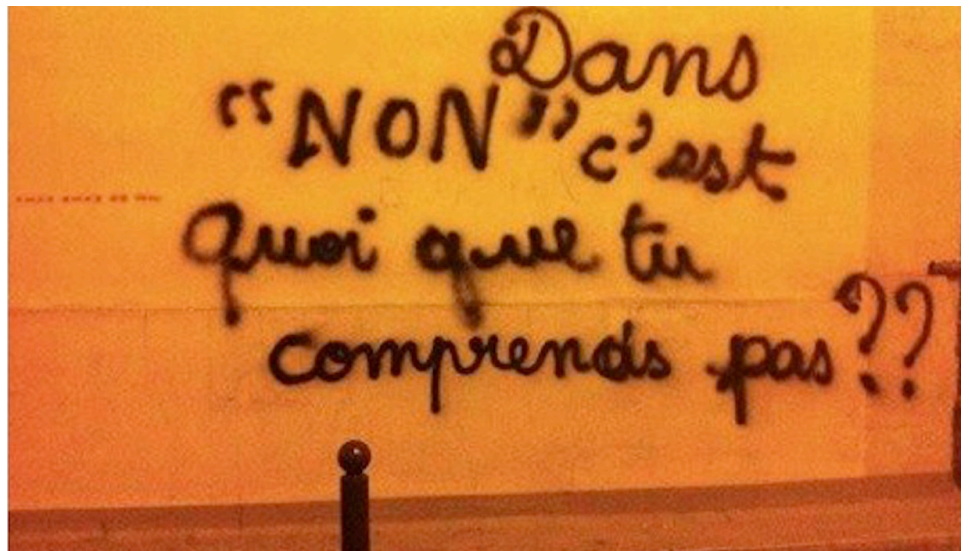 Dans
"NON" c'est
Quoi que tu
comprends pas??